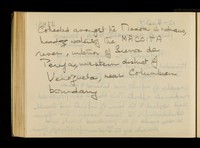 Collected amongst the Macoa Indians
living
the MACOITA
river, interior of Sierra de
Perija, western district of
Venezuela, near Columbian
boundary